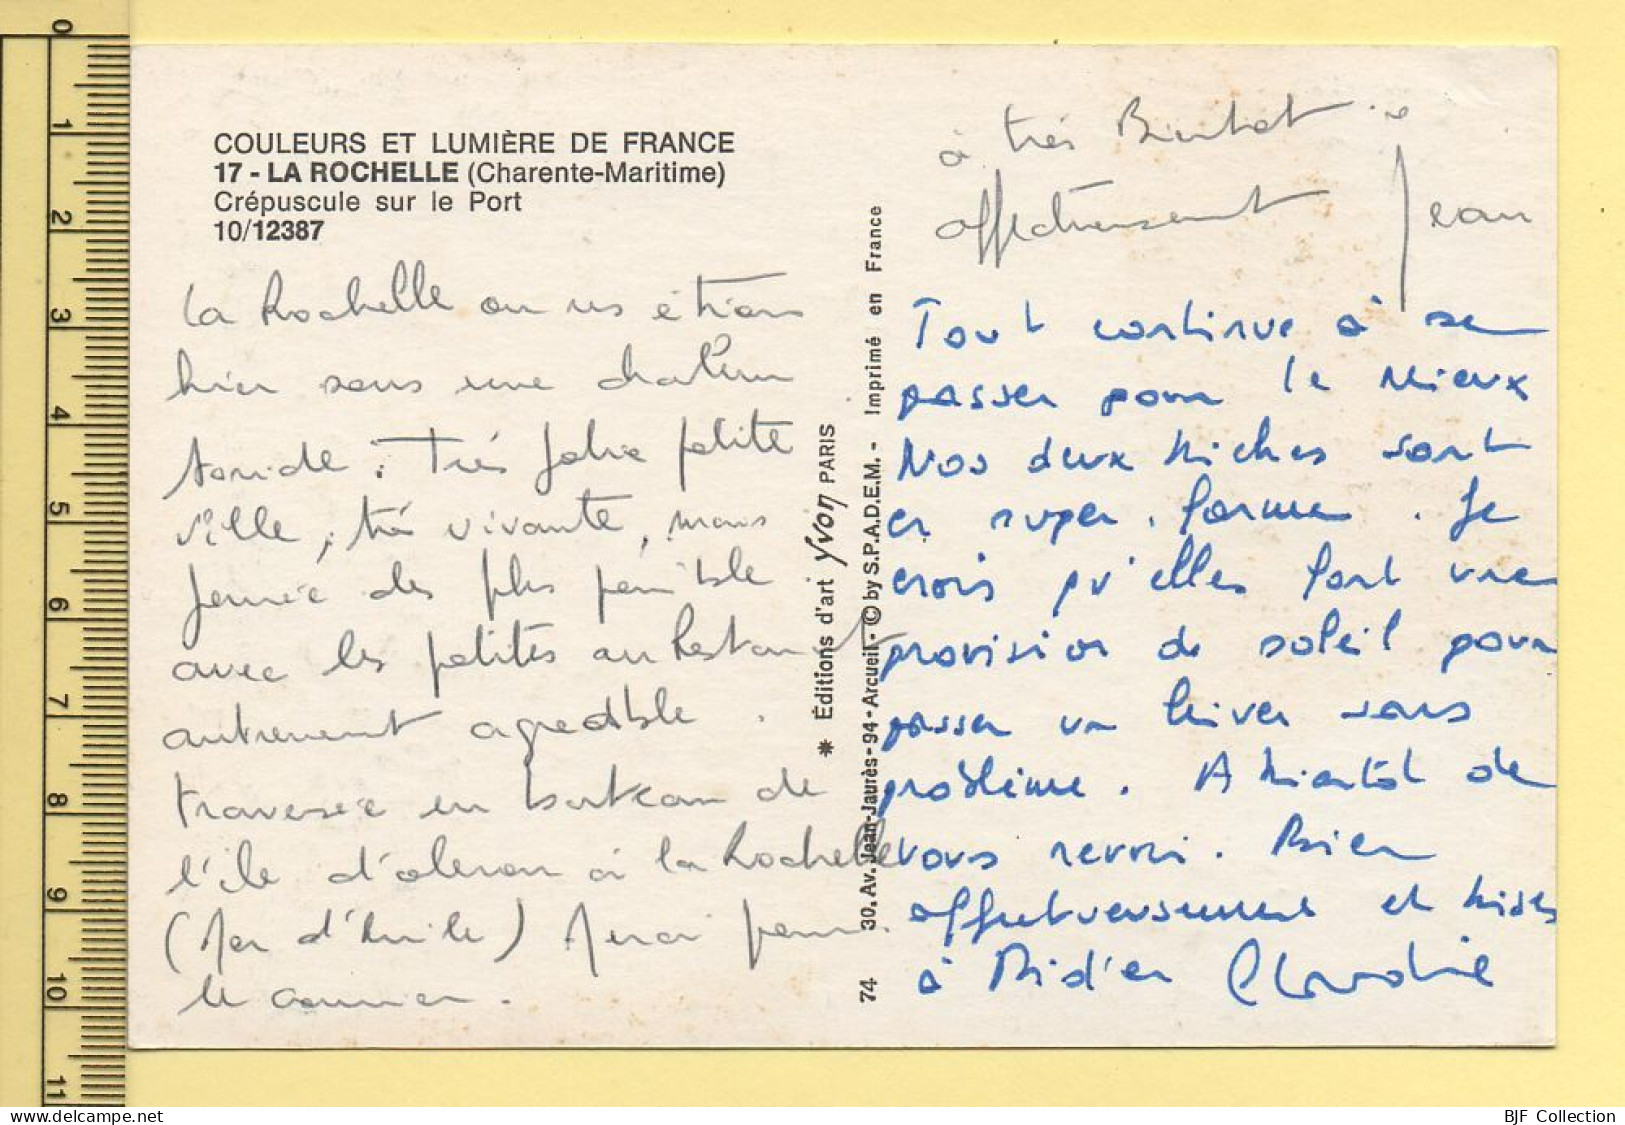 COULEURS ET LUMIÈRE DE FRANCE
17 - LA ROCHELLE (Charente-Maritime)
Crépuscule sur le Port
10/12387
La Rochelle ou ns étions
hier sous une chaleur
torride. Très jolie petite
ville, très vivante, mais
journée des plus pénible
avec les petites au Restaurant
autrement agréable.
traversée en bateau de
l'île d'oleron à la Rochelle
(Mer d'huile) Merci pour
le courrier.
à très Bientôt
affectueusement Jean
Tout continue à se
passer pour le mieux
Nos deux niches sont
en super. forme. Je
crois qu'elles font une
provision de soleil pour
passer un hiver sans
problème. A bientôt de
vous revoir. Bien
affectueusement et bises
à Claudie
* Éditions d'art Yvon PARIS
74 30, Av. Jean-Jaurès - 94 - Arcueil - © by S.P.A.D.E.M. - Imprimé en France
0
1
2
3
4
5
6
7
8
9
10
11
www.delcampe.net
BJF Collection